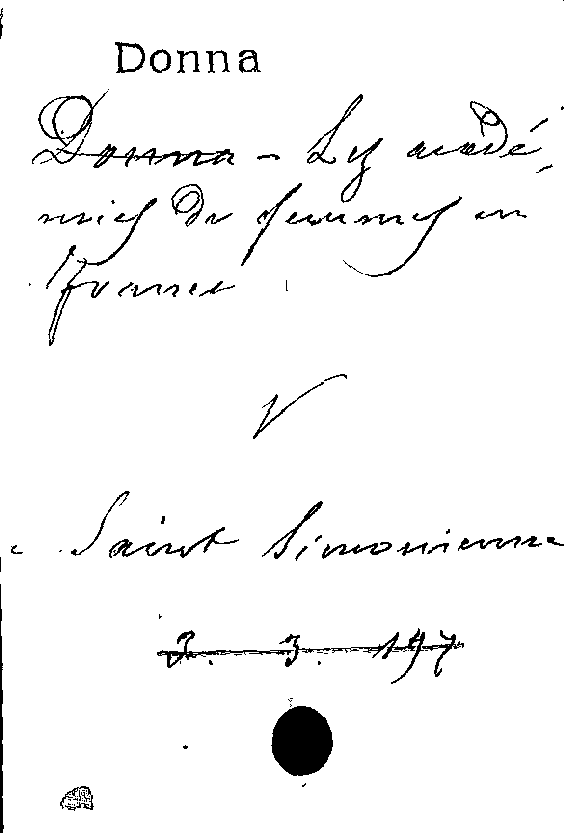 Donna
Donna - Les acadé-
mies de femmes en
France
V
Saint Simonienne
3. 3. 197